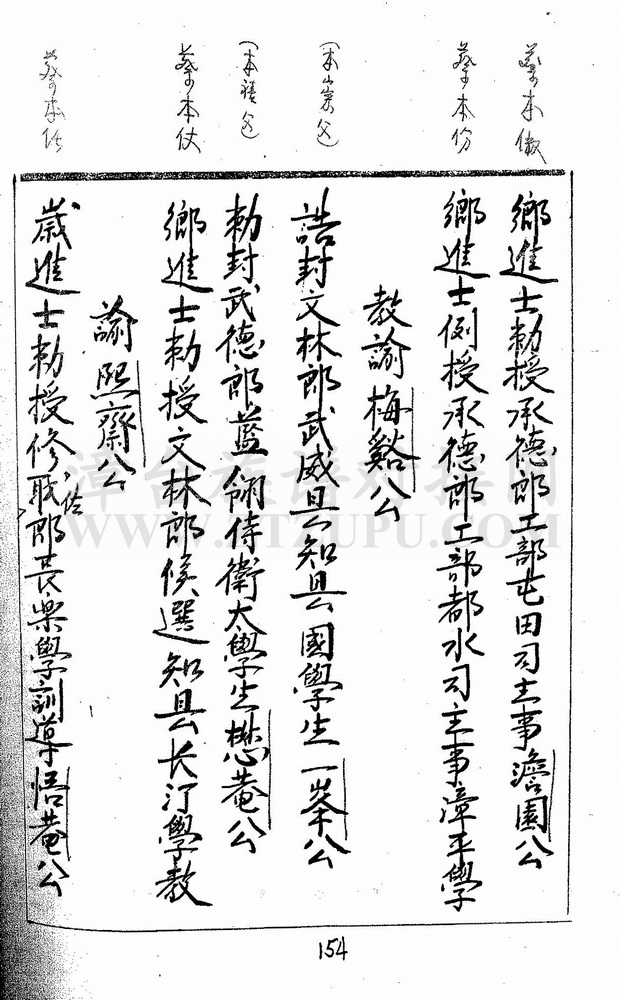 蔡本俶
鄉進士勅授承德郎工部屯田司主事澹園公
蔡本份
鄉進士例授承德郎工部都水司主事漳平學
教諭梅谿公
(本崇父)
誥封文林郎武威县知县國學生一峯公
(本禧父)
勅封武德郎藍翎侍衛大學生懋菴公
蔡本仗
鄉進士勅授文林郎候選知县长汀學教
諭熙齋公
蔡本
歲進士勅授修職佐郎長樂學訓導悟菴公
154
漳台族谱对接网
WWW.ZTZUPU.COM